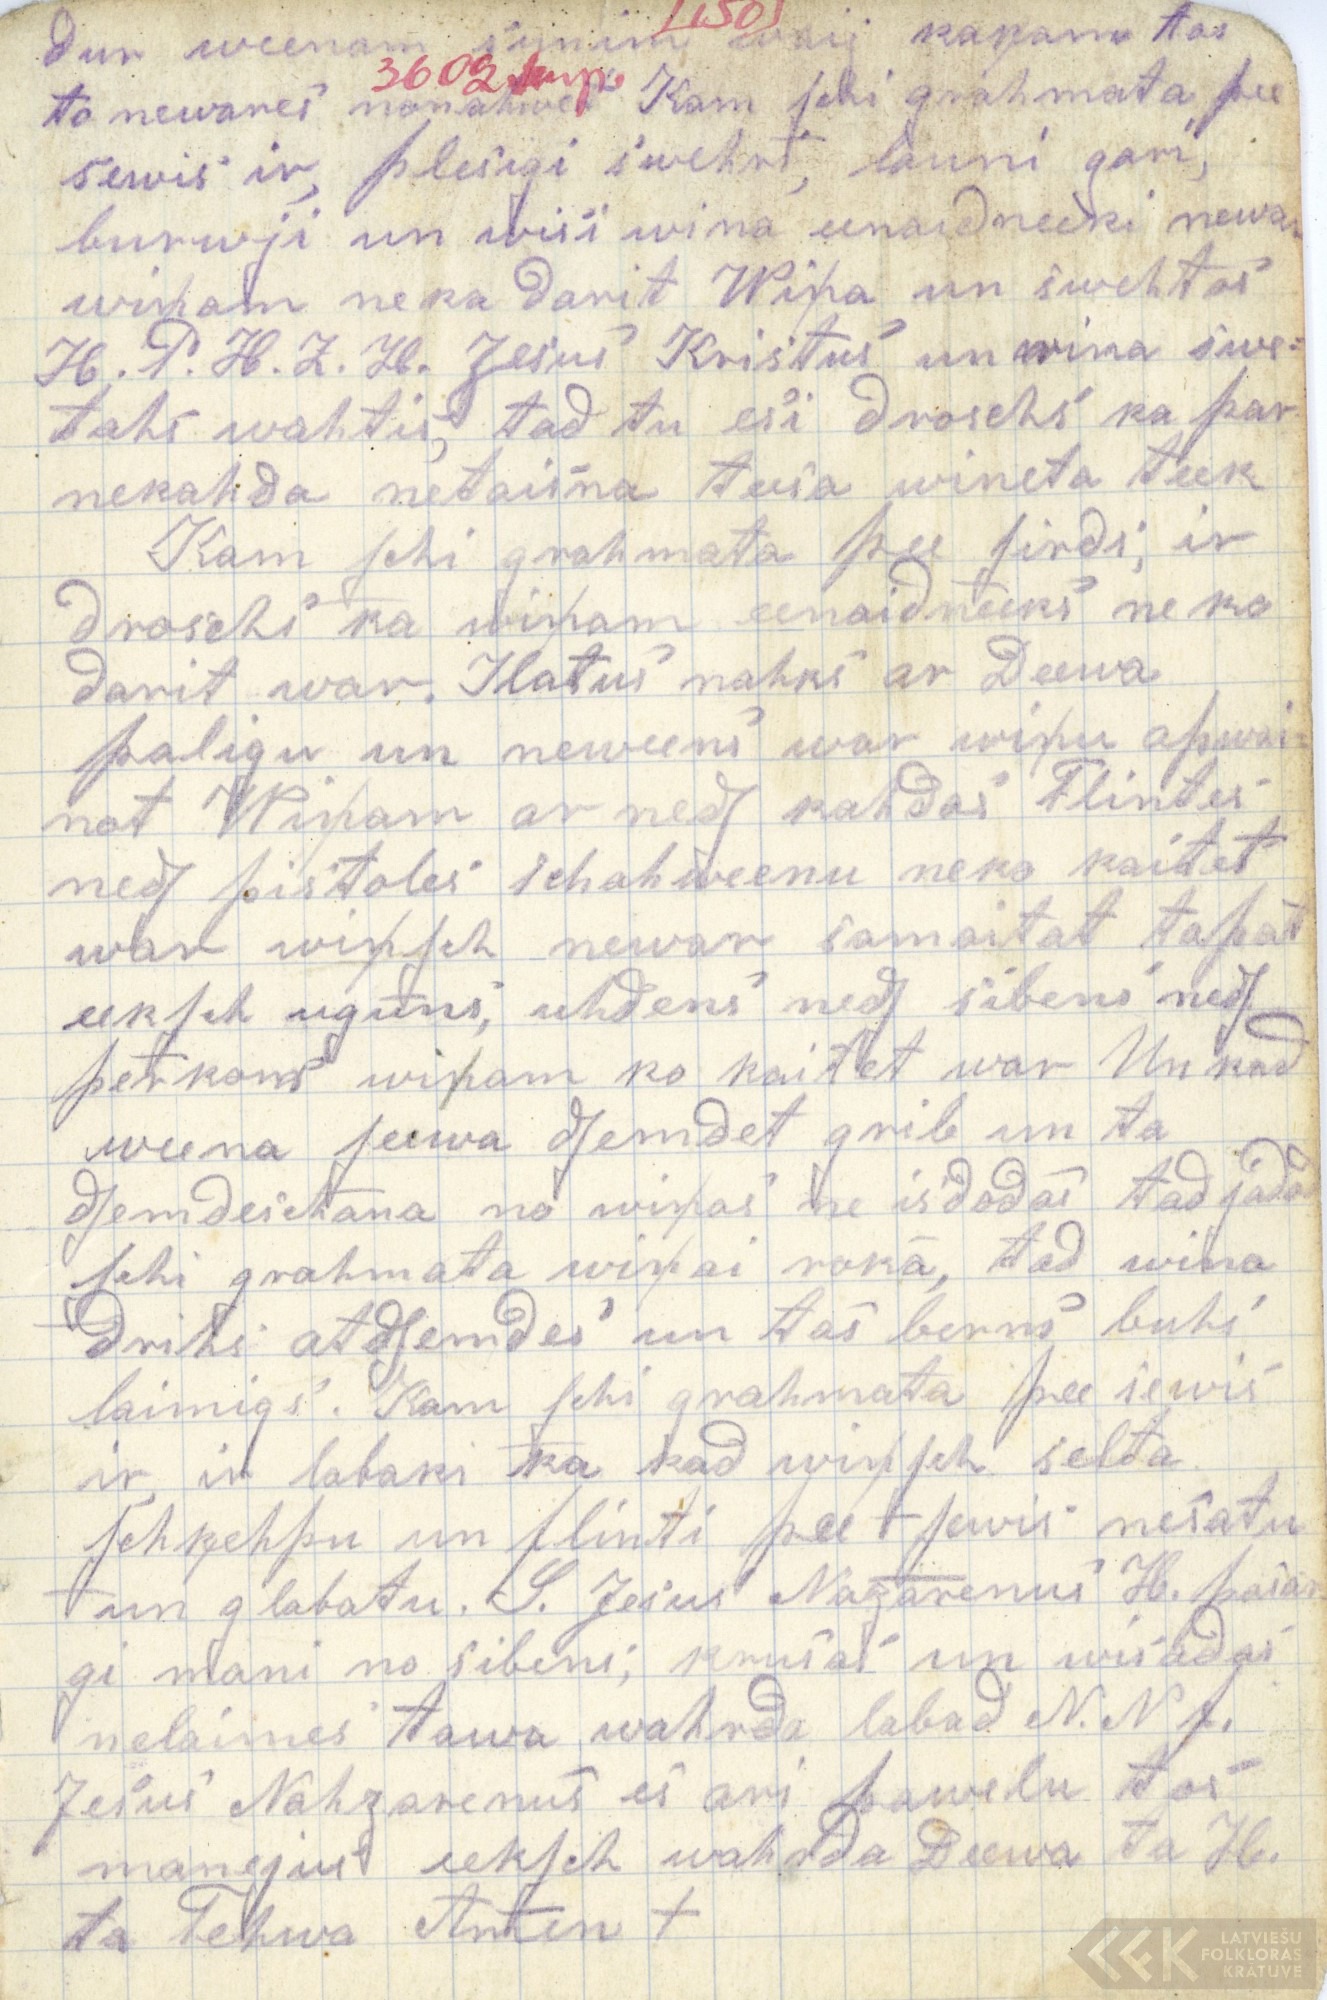 [150]
dur weenam sunim waij kakam tas
3602
to newares nonahwet Kam schi grahmata pee
sewis ir, plesigi swehri, launi gari,
burwji un wisi wina eenaidneeki newar
wiņam neka darit Wiņa un swehtas
H. P. H. Z. H. Jesus Kristus un wina swe-
tahs wahtis, tad tu esi droschs ka par
nekahda netaisna teesa wineta teek
Kam schi grahmata pee sirds, ir
droschs ka wiņam eenaidneeks neko
darit war. Ilatus nahks ar Deewa
paligu un neweens war wiņu apwai-
not Wiņam ar nedz kahdas Flintes
nedz pistoles schahweenu neko kaitet
war wiņsch newar samaitat tapat
eeksch uguns, uhdens nedz sibens nedz
perkons wiņam ko kaitet war Un kad
weena seewa dzemdet grib un ta
dzemdeschana no wiņas ne isdodas tad jadod
schi grahmata wiņai rokā, tad wina
drihs atdzemdes un tas berns buhs
laimigs. Kam schi grahmata pee sewis
ir, ir labaks ka kad wiņsch selta
schķehpu un flinti pee sewis nesatu
un glabatu. S. Jesus Nazarenus H. pasar
gi mani no sibens, krusas un wisadas
nelaimes tawa wahrda labad N. N
Jesus Nahzarenus es ari pawelu tos
manejus eeksch wahrda Deewa ta H.
ta Tehwa Amen +
LATVIEŠU
FOLKLORAS
KRĀTUVE